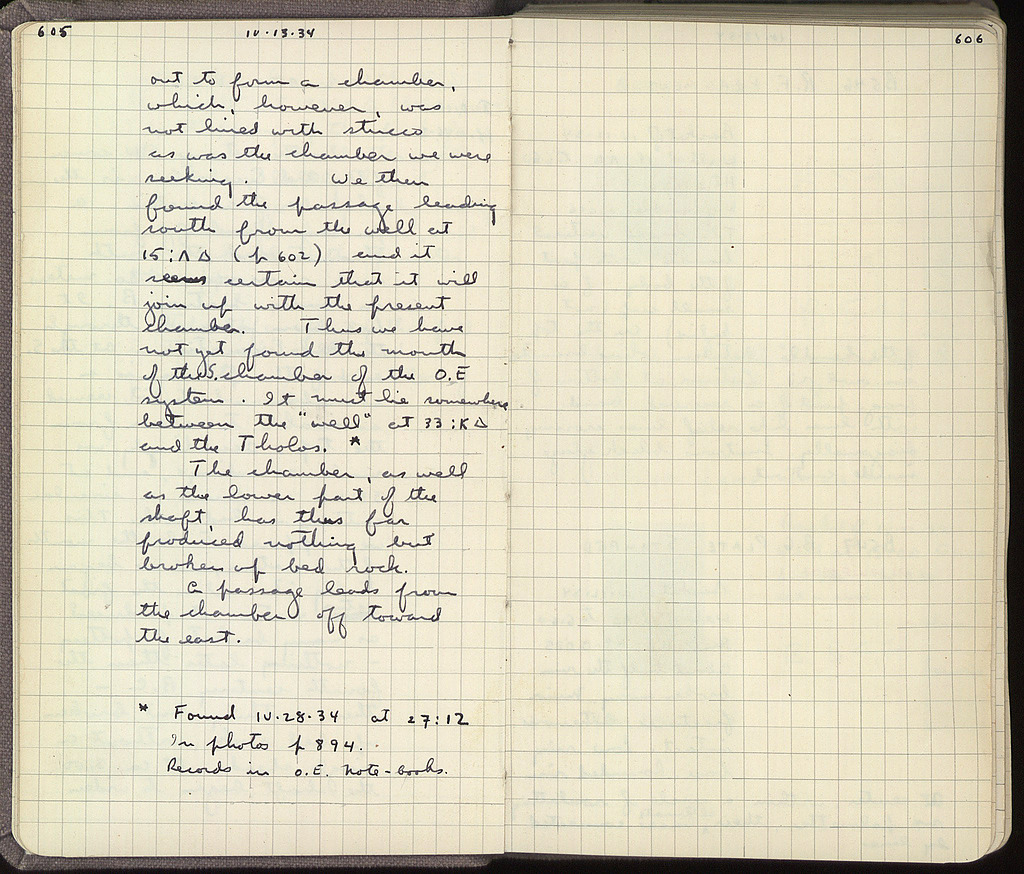 605
IV·13·34
606
out to form a chamber,
which, however, was
not lined with stucco
as was the chamber we were
seeking. We then
found the passage leading
south from the well at
15:ΛΔ (p 602) and it
seems certain that it will
join up with the present
chamber. Thus we have
not yet found the mouth
of the S. chamber of the O.E
system. It must lie somewhere
between the "well" at 33:ΚΔ
and the Tholos. *
The chamber, as well
as the lower part of the
shaft, has thus far
produced nothing but
broken up bed rock.
A passage leads from
the chamber off toward
the east.
* Found IV·28·34 at 27:12
In photos p 894.
Records in O.E. note-books.